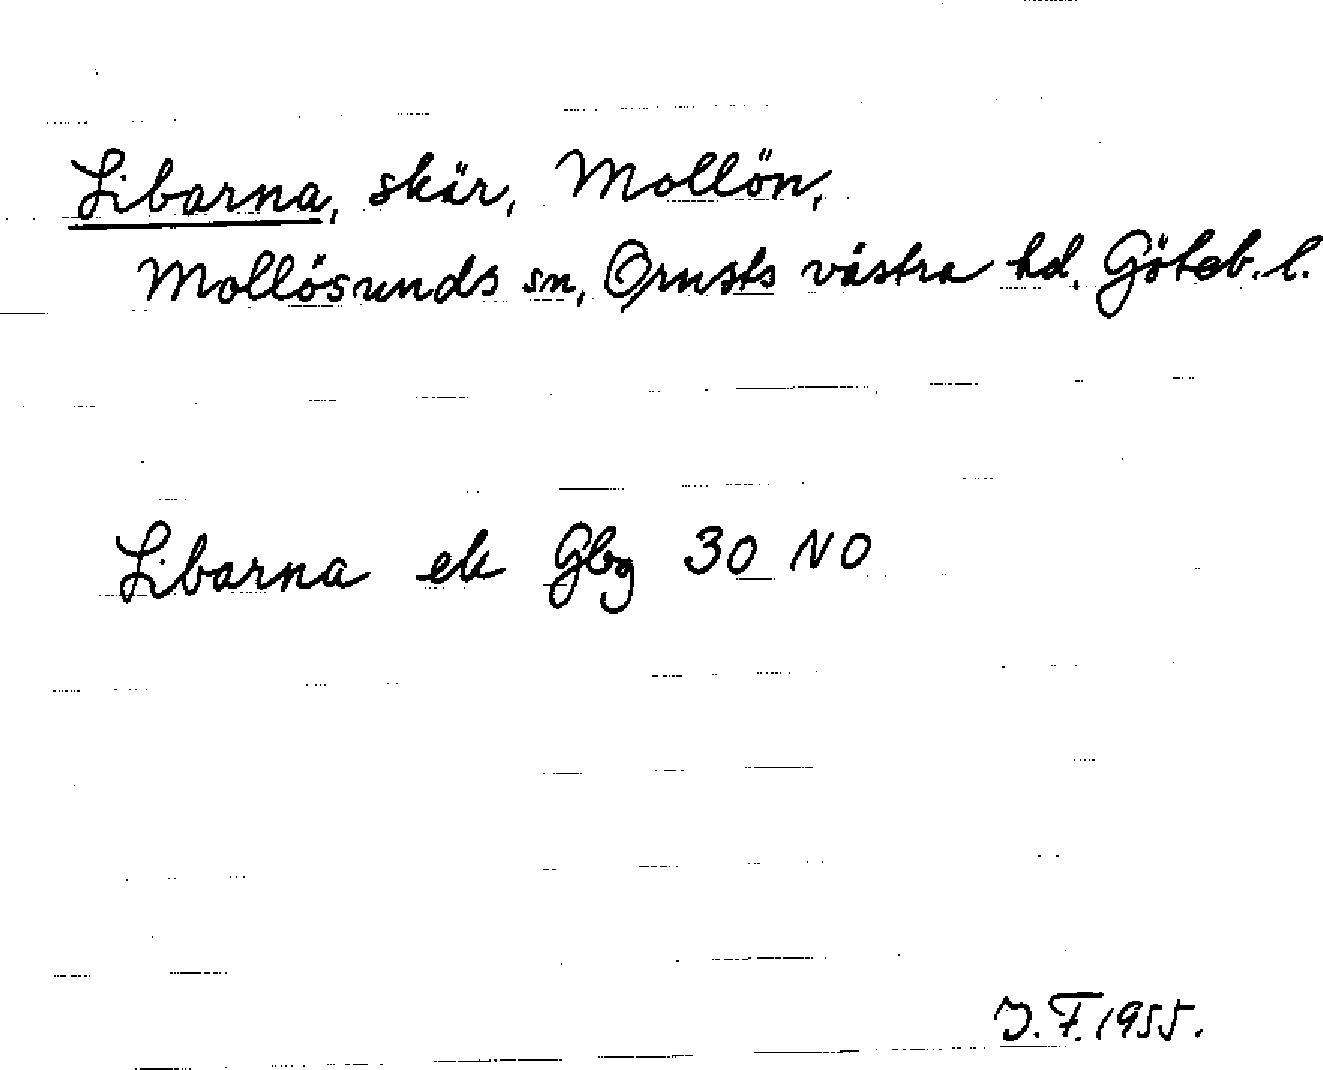 Libarna, skär, Mollön,
Mollösunds sn, Orusts västra hd, Göteb. l.
Libarna ek Gbg 30 NO
J. F. 1955.